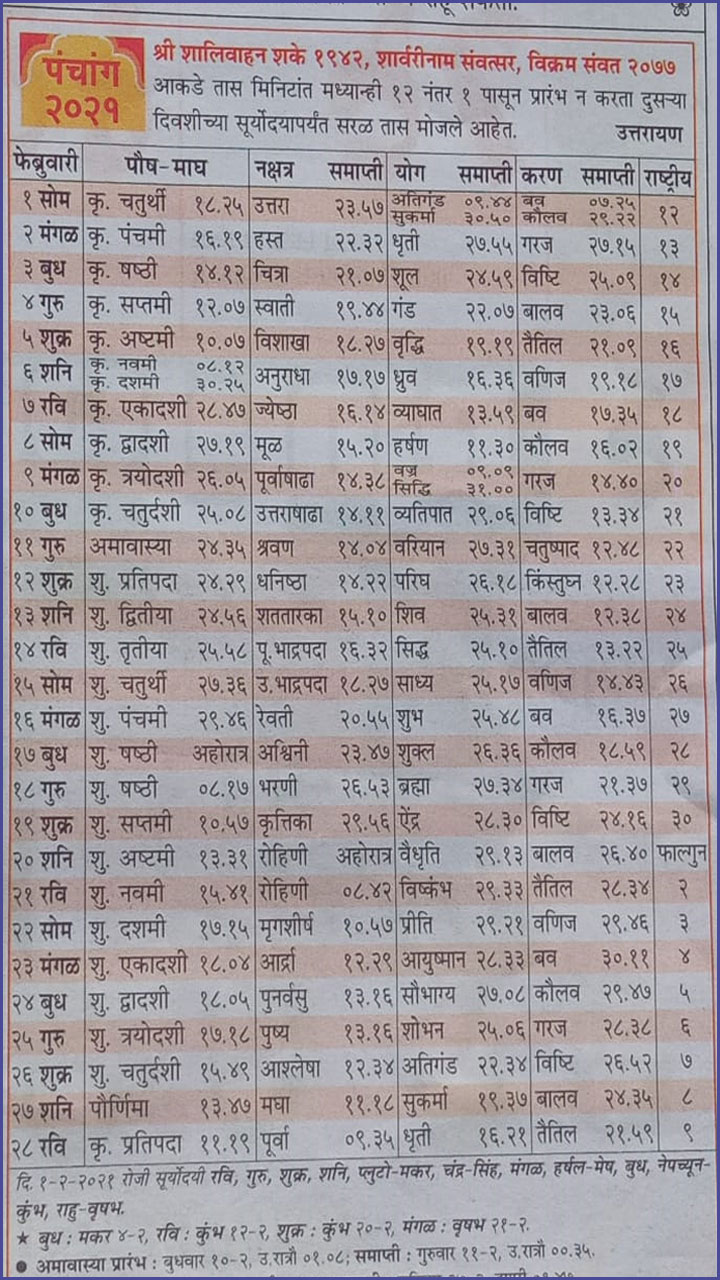 पंचांग
२०२१
श्री शालिवाहन शके १९४२, शार्वरीनाम संवत्सर, विक्रम संवत २०७७
आकडे तास मिनिटांत मध्यान्ही १२ नंतर १ पासून प्रारंभ न करता दुसऱ्या
दिवशीच्या सूर्योदयापर्यंत सरळ तास मोजले आहेत. उत्तरायण
फेब्रुवारी पौष-माघ नक्षत्र समाप्ती योग समाप्ती करण समाप्ती राष्ट्रीय
१ सोम कृ. चतुर्थी १८.२५ उत्तरा २३.५७ अतिगंड ०९.४४ सुकर्मा ३०.५० बव ०७.२५ कौलव २९.२२ १२
२ मंगळ कृ. पंचमी १६.१९ हस्त २२.३२ धृती २७.५५ गरज २७.१५ १३
३ बुध कृ. षष्ठी १४.१२ चित्रा २१.०७ शूल २४.५९ विष्टि २५.०९ १४
४ गुरु कृ. सप्तमी १२.०७ स्वाती १९.४४ गंड २२.०७ बालव २३.०६ १५
५ शुक्र कृ. अष्टमी १०.०७ विशाखा १८.२७ वृद्धि १९.१९ तैतिल २१.०९ १६
६ शनि कृ. नवमी ०८.१२ कृ. दशमी ३०.२५ अनुराधा १७.१७ ध्रुव १६.३६ वणिज १९.१८ १७
७ रवि कृ. एकादशी २८.४७ ज्येष्ठा १६.१४ व्याघात १३.५९ बव १७.३५ १८
८ सोम कृ. द्वादशी २७.१९ मूळ १५.२० हर्षण ११.३० कौलव १६.०२ १९
९ मंगळ कृ. त्रयोदशी २६.०५ पूर्वाषाढा १४.३८ वज्र ०९.०९ सिद्धि ३१.०० गरज १४.४० २०
१० बुध कृ. चतुर्दशी २५.०८ उत्तराषाढा १४.११ व्यतिपात २९.०६ विष्टि १३.३४ २१
११ गुरु अमावास्या २४.३५ श्रवण १४.०४ वरियान २७.३१ चतुष्पाद १२.४८ २२
१२ शुक्र शु. प्रतिपदा २४.२९ धनिष्ठा १४.२२ परिघ २६.१८ किंस्तुघ्न १२.२८ २३
१३ शनि शु. द्वितीया २४.५६ शततारका १५.१० शिव २५.३१ बालव १२.३८ २४
१४ रवि शु. तृतीया २५.५८ पू.भाद्रपदा १६.३२ सिद्ध २५.१० तैतिल १३.२२ २५
१५ सोम शु. चतुर्थी २७.३६ उ.भाद्रपदा १८.२७ साध्य २५.१७ वणिज १४.४३ २६
१६ मंगळ शु. पंचमी २९.४६ रेवती २०.५५ शुभ २५.४८ बव १६.३७ २७
१७ बुध शु. षष्ठी अहोरात्र अश्विनी २३.४७ शुक्ल २६.३६ कौलव १८.५९ २८
१८ गुरु शु. षष्ठी ०८.१७ भरणी २६.५३ ब्रह्मा २७.३४ गरज २१.३७ २९
१९ शुक्र शु. सप्तमी १०.५७ कृत्तिका २९.५६ ऐंद्र २८.३० विष्टि २४.१६ ३०
२० शनि शु. अष्टमी १३.३१ रोहिणी अहोरात्र वैधृति २९.१३ बालव २६.४० फाल्गुन
२१ रवि शु. नवमी १५.४१ रोहिणी ०८.४२ विष्कंभ २९.३३ तैतिल २८.३४ २
२२ सोम शु. दशमी १७.१५ मृगशीर्ष १०.५७ प्रीति २९.२१ वणिज २९.४६ ३
२३ मंगळ शु. एकादशी १८.०४ आर्द्रा १२.२९ आयुष्मान २८.३३ बव ३०.११ ४
२४ बुध शु. द्वादशी १८.०५ पुनर्वसु १३.१६ सौभाग्य २७.०८ कौलव २९.४७ ५
२५ गुरु शु. त्रयोदशी १७.१८ पुष्य १३.१६ शोभन २५.०६ गरज २८.३८ ६
२६ शुक्र शु. चतुर्दशी १५.४९ आश्लेषा १२.३४ अतिगंड २२.३४ विष्टि २६.५२ ७
२७ शनि पौर्णिमा १३.४७ मघा ११.१८ सुकर्मा १९.३७ बालव २४.३५ ८
२८ रवि कृ. प्रतिपदा ११.१९ पूर्वा ०९.३५ धृती १६.२१ तैतिल २१.५९ ९
दि. १-२-२०२१ रोजी सूर्योदयी रवि, गुरु, शुक्र, शनि, प्लुटो-मकर, चंद्र-सिंह, मंगळ, हर्षल-मेष, बुध, नेपच्यून-
कुंभ, राहु-वृषभ.
★ बुध : मकर ४-२, रवि : कुंभ १२-२, शुक्र : कुंभ २०-२, मंगळ : वृषभ २१-२.
● अमावास्या प्रारंभ : बुधवार १०-२, उ.रात्रौ ०१.०८; समाप्ती : गुरुवार ११-२, उ.रात्रौ ००.३५.